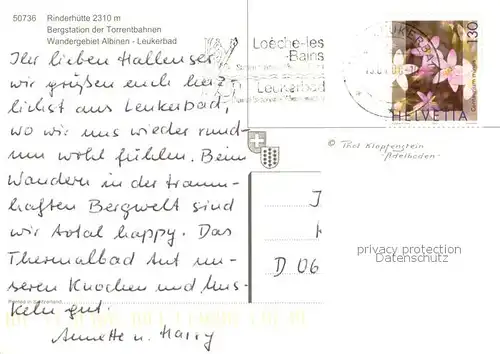 50736 Rinderhütte 2310 m
Bergstation der Torrentbahnen
Wandergebiet Albinen - Leukerbad
Ihr lieben Hallenser,
wir grüßen euch herz-
lichst aus Leukerbad,
wo wir uns wieder rund-
um wohl fühlen. Beim
Wandern in der traum-
haften Bergwelt sind
wir total happy. Das
Thermalbad tut un-
seren Knochen und Mus-
keln gut.
Annette u. Harry
Printed in Switzerland
Loèche-les
-Bains
Leukerbad
LEUKERBAD
130
HELVETIA
© Phot Klopfenstein
Adelboden
D 06
privacy protection
Datenschutz